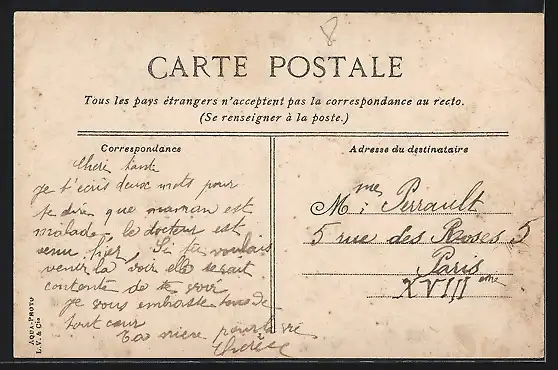 8
CARTE POSTALE
Tous les pays étrangers n'acceptent pas la correspondance au recto.
(Se renseigner à la poste.)
Correspondance
Chère tante
je t'écris deux mots pour
te dire que maman est
malade, le docteur est
venu hier, Si tu voulais
venir la voir elle serait
contente de te voir
je vous embrasse tous de
tout cœur
Ta nièce pour la vie
Thérèse
Adresse du destinataire
Mme Perrault
5 rue des Roses 5
Paris
XVIII eme
AQUA-PHOTO
L. V. & Cie